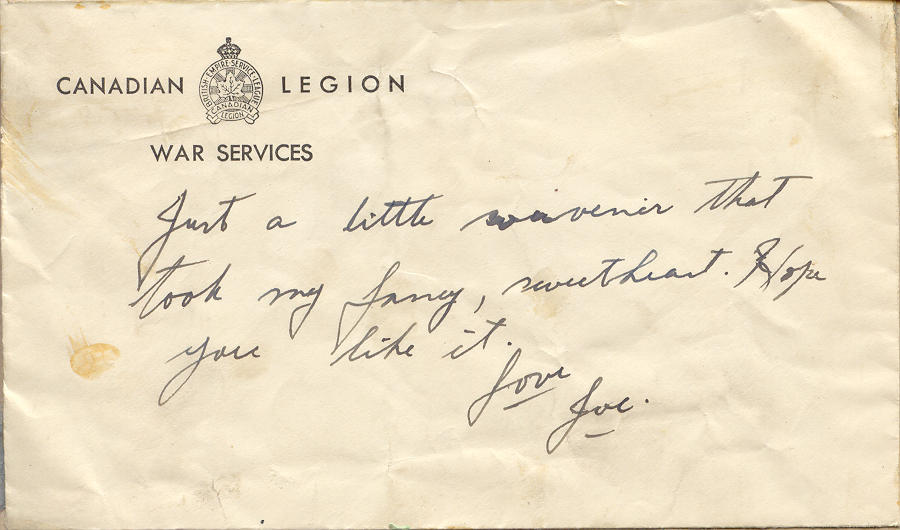 CANADIAN LEGION
BRITISH EMPIRE SERVICE LEAGUE
CANADIAN
LEGION
WAR SERVICES
Just a little souvenir that
took my fancy, sweetheart. Hope
you like it.
Love
Joe.